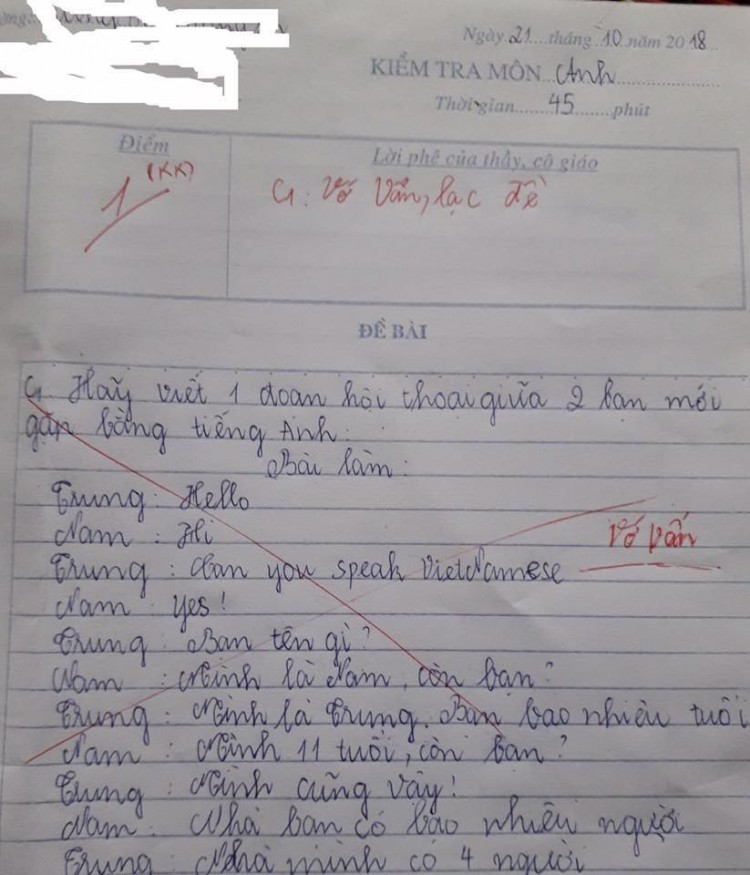 Ngày 21 tháng 10 năm 2018
KIỂM TRA MÔN Anh
Thời gian 45 phút
Điểm
Lời phê của thầy, cô giáo
1 (KK)
G: Vớ Vẩn, lạc đề
ĐỀ BÀI
Hãy viết 1 đoạn hội thoại giữa 2 bạn mới
gặp bằng tiếng Anh:
Bài làm:
Trung: Hello
Nam: Hi
Trung: Can you speak VietNamese
Vớ vấn
Nam: yes!
Trung: Bạn tên gì?
Nam: Mình là Nam, còn bạn?
Trung: Mình là Trung. Bạn bao nhiêu tuổi
Nam: Mình 11 tuổi, còn bạn?
Trung: Mình cũng vậy!
Nam: Nhà bạn có bao nhiêu người
Trung: Nhà mình có 4 người